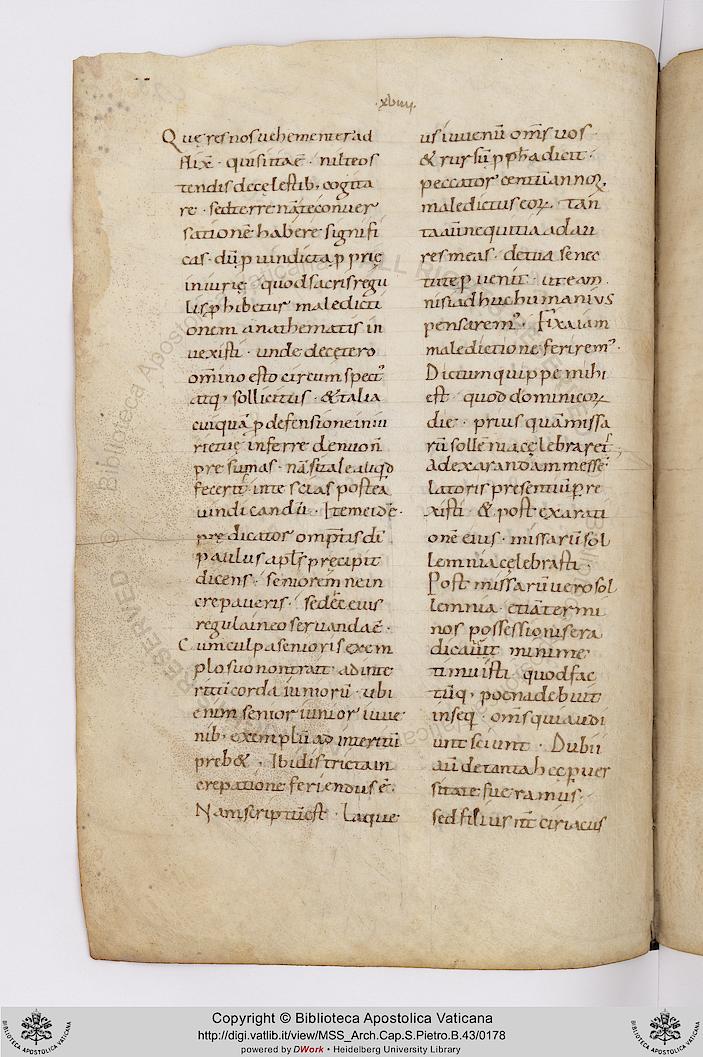 .xviiii.
Quę res nos uehementer ad
flixit · qui si ita ē · nil te os
tendis de cęlestib; cogita
re · sed terrenā te conuer
sationē habere signifi
cas · dū p uindicta pprię
iniurię quod sacris regu
lis phibetur maledicti
onem anathematis in
uexisti · unde de cętero
om̄ino esto circumspect
atq; sollicitus · & talia
cuiquā p defensione iniu
rię tuę inferre denuo n̄
presumas · nā si tale aliqd
feceris in te scias postea
uindicandū · Item eidē ·
prędicator om̄ptis dī
paulus apls pręcipit
dicens · seniorem ne in
crepaueris · sed ęc eius
regula in eo seruanda ē ·
Cum culpa senioris exem
plo suo non trait ad inte
ritū corda iuniorū · ubi
enim senior iunior iuue
nib; exemplū ad interitū
preb& · Ibi districta in
crepatione feriendus ē ·
Nam scriptū est · Laque
us iuuenū om̄s uos ·
& rursū ppha dicit ·
peccator centū annoꝝ
maledictus eoꝝ · tan
ta aū nequitia ad au
res meas · de tua senec
tute puenit · ut eam
nisi adhuc humanius
pensarem · fixa iam
maledictione ferirem ·
Dictum quippe mihi
est · quod dominicoꝝ
die · prius quā missa
rū sollēnia cęlebraret
ad exarandam messē
latoris presentiū pre
xisti · & post exarati
onē eius · missarū sol
lemnia cęlebrasti ·
Post missarū uero sol
lemnia · etiā termi
nos possessionis era
dicauit minime
timuisti quod fac
tūq; poena debuit
inseq · om̄s qui audi
unt sciunt · Dubii
aū de tanta hęc puer
sitate fueramus ·
sed filius nr ciriacus
Copyright © Biblioteca Apostolica Vaticana
http://digi.vatlib.it/view/MSS_Arch.Cap.S.Pietro.B.43/0178
powered by DWork • Heidelberg University Library